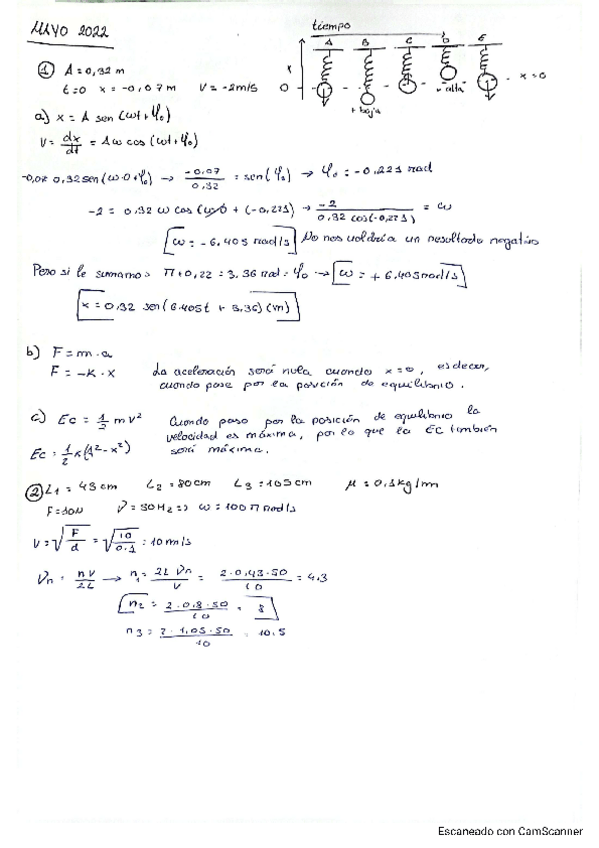 MAYO 2022
tiempo
A B C D E
x
0
+ baja
"alta"
x=0
① A = 0,32 m
t=0 x = -0,07 m V = -2m/s
a) x = A sen (ωt + φ₀)
V = dx/dt = Aω cos (ωt + φ₀)
-0,07 0,32 sen (ω·0 + φ₀) → -0.07/0,32 = sen(φ₀) → φ₀ = -0.221 rad
-2 = 0.32 ω cos (ω·0 + (-0,221) → -2/0,32 cos(-0,221) = ω
ω = -6.405 rad/s No nos valdría un resultado negativo
Pero si le sumamos π + 0,22 = 3.36 rad = φ₀ → ω = + 6.405 rad/s
x = 0.32 sen (6.405t + 3,36) (m)
b) F = m·a
F = -K·X La aceleración será nula cuando x=0, es decir,
cuando pase por la posición de equilibrio.
c) Ec = 1/2 mv² Cuando pasa por la posición de equilibrio la
velocidad es máxima, por lo que la EC también
será máxima.
Ec = 1/2 K(A²-x²)
② L₁ = 43 cm L₂ = 80cm L₃ = 105 cm μ = 0.1 kg/m
F = 10N ν = 50Hz => ω = 100 π rad/s
v = √F/d = √10/0.1 = 10 m/s
νn = nv/2L → n₁ = 2L νn/v = 2·0,43·50/10 = 4.3
n₂ = 2·0.8·50/10 = 8
n₃ = 2·1,05·50/10 = 10.5
Escaneado con CamScanner